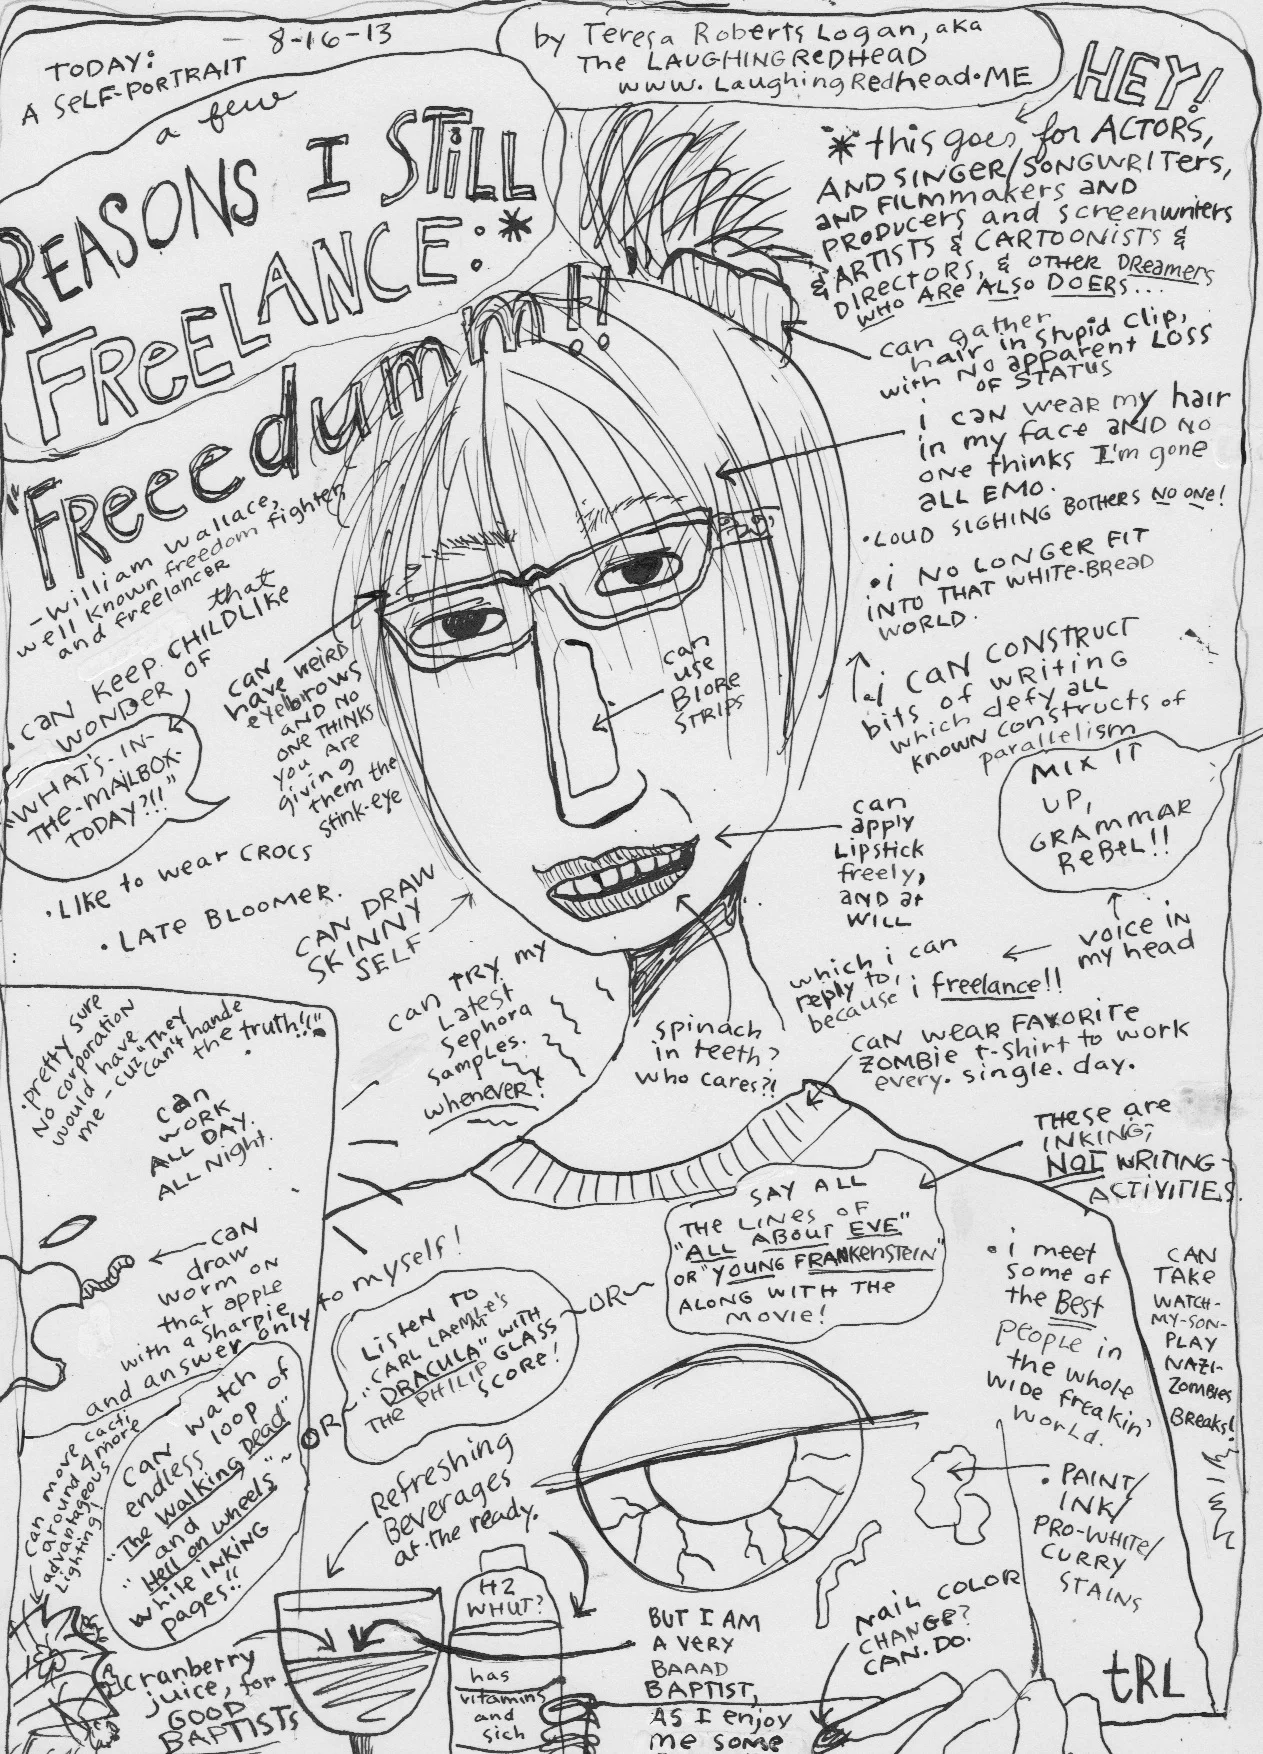 TODAY:
A SELF-PORTRAIT
8-16-13
by Teresa Roberts Logan, aka
The LAUGHINGREDHEAD
www.LaughingRedhead.ME
a few
REASONS I STILL
FREELANCE:*
HEY!
* this goes for ACTORS,
AND SINGER/SONGWRITERS,
and FILMMAKERS and
PRODUCERS and screenwriters
& ARTISTS & CARTOONISTS &
DIRECTORS, & OTHER DReamers
WHO ARE ALSO DOERS...
"FReeedumm!!
-William Wallace,
well known freedom fighter
and freelancer
can gather
hair in stupid clip,
with no apparent LOSS
OF STATUS
i can wear my hair
in my face AND NO
one thinks I'm gone
all EMO.
• LOUD SIGHING BOTHERS NO ONE!
• i NO LONGER FIT
INTO THAT WHITE-BREAD
WORLD.
• i CAN CONSTRUCT
bits of writing
which defy all
known constructs of
parallelism
MIX IT
UP,
GRAMMAR
REBEL!!
voice in
my head
which i can
reply to,
because i freelance!!
• CAN KEEP that
CHILDLIKE
WONDER OF
"WHAT'S-IN-
THE-MAILBOX-
TODAY?!!"
can
have weird
eyebrows
AND NO
ONE THINKS
you are
giving
them the
stink-eye
can
use
BIORE
STRIPS
• LIke to wear CROCS
• LATE BLOOMER.
CAN DRAW
SKINNY
SELF
can
apply
Lipstick
freely,
AND at
WILL
can TRY my
Latest
Sephora
samples.
whenever!
spinach
in teeth?
who cares?!
CAN WEAR FAVORITE
ZOMBIE t-SHIRT to WORK
every. single. day.
• pretty sure
No corporation
would have
me - cuz "They
can't handle
the truth!!"
can
WORK
ALL DAY.
ALL Night.
can
draw
worm on
that apple
with a Sharpie
and answer only to myself!
THESE are
INKING,
NOT WRITING
ACTIVITIES.
SAY ALL
THE LINES OF
"ALL ABOUT EVE"
OR "YOUNG FRANKenstein"
ALONG WITH THE
MOVIE!
~OR~
Listen to
"CARL LAEMMLE'S
DRACULA" WITH
THE PHILIP GLASS
SCORE!
OR
CAN watch
endless loop of
"The Walking Dead"
and
"Hell on Wheels"
while INKING
pages!!
can move cacti
around 4 more
advantageous
Lighting!
Refreshing
Beverages
at the ready.
H2
WHUT?
has
vitamins
and
sich
cranberry
juice, for
GOOD
BAPTISTS
BUT I AM
A VERY
BAAAD
BAPTIST,
AS I enjoy
me some
• i meet
some of
the Best
people in
the whole
wide freakin'
world.
CAN
TAKE
WATCH-
MY-SON-
PLAY
NAZI-
ZOMBIES
BREAKS!
• PAINT/
INK/
PRO-WHITE/
CURRY
STAINS
NAIL COLOR
CHANGE?
CAN.DO.
tRL